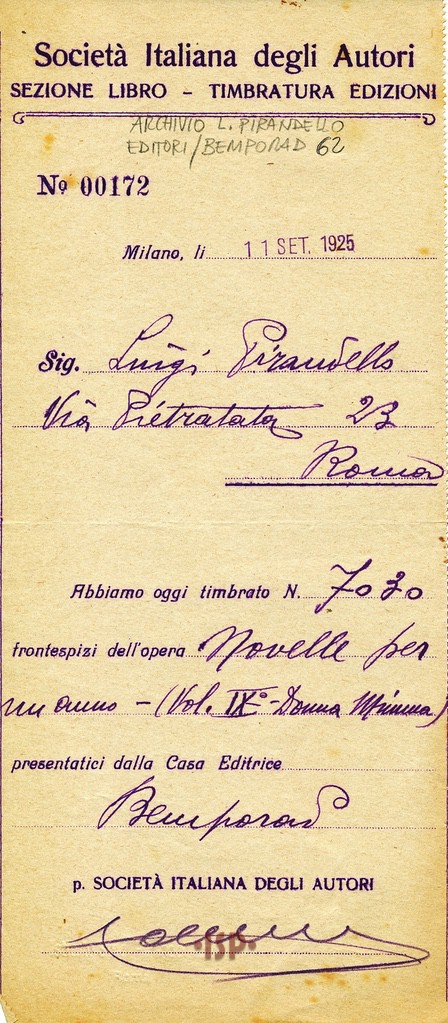 Società Italiana degli Autori
SEZIONE LIBRO - TIMBRATURA EDIZIONI
ARCHIVIO L. PIRANDELLO
EDITORI/BEMPORAD 62
Nº 00172
Milano, li 11 SET. 1925
Sig. Luigi Pirandello
Via Pietralata 23
Roma
Abbiamo oggi timbrato N. 7030
frontespizi dell'opera Novelle per
un anno - (Vol. IX° - Donna Mimma)
presentatici dalla Casa Editrice
Bemporad
p. SOCIETÀ ITALIANA DEGLI AUTORI
·ISP·